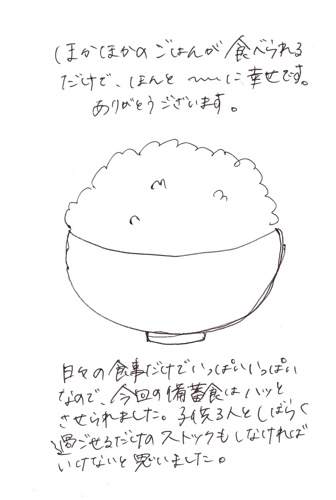 ほかほかのごはんが食べられる
だけで、ほんと〜〜に幸せです。
ありがとうございます。
日々の食事だけでいっぱいいっぱい
なので、今回の備蓄食はハッと
させられました。子供3人としばらく
過ごせるだけのストックもしなければ
いけないと思いました。